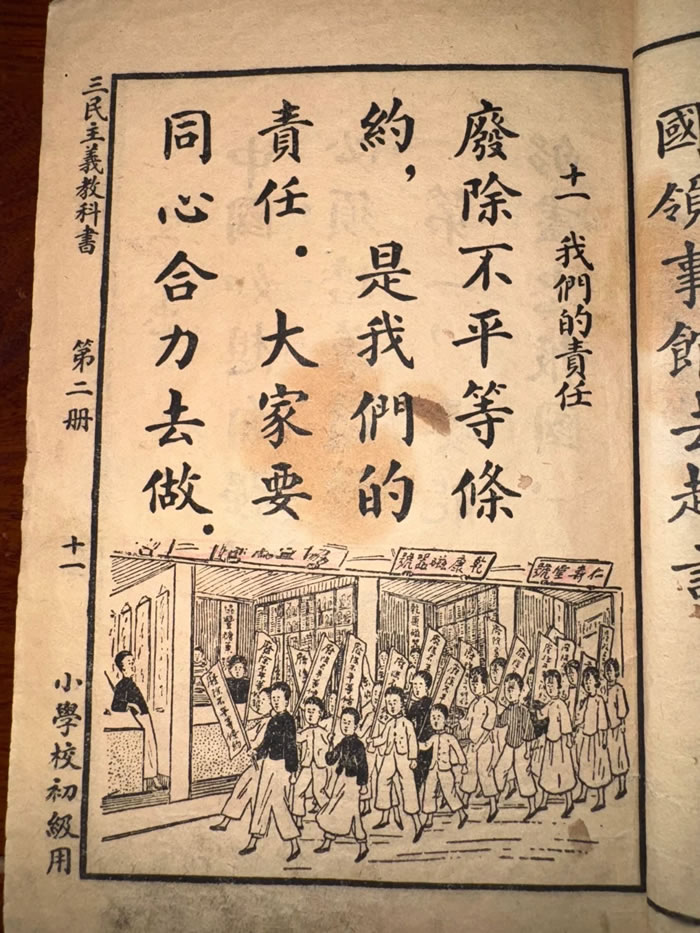 國領事館去
十一　我們的責任
廢除不平等條
約，是我們的
責任．大家要
同心合力去做．
仁壽堂號
乾康磁器號
廢除不平等條約
三民主義教科書　第二册　十一　小學校初級用